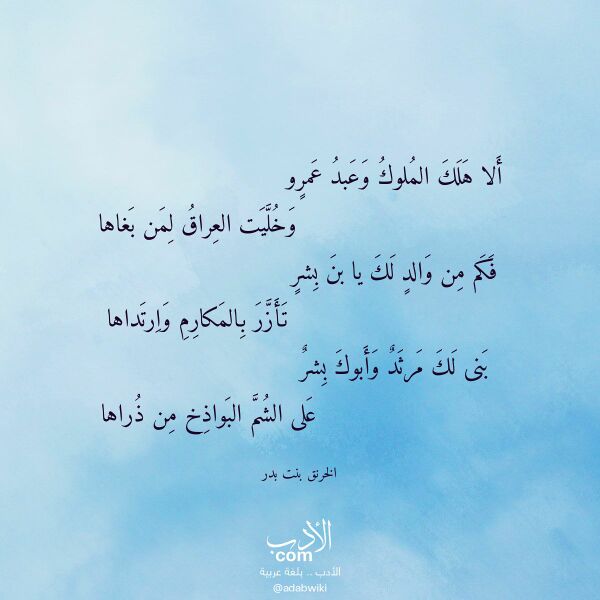 أَلا هَلَكَ المُلوكُ وَعَبدُ عَمرٍو
وَخُلَّيَت العِراقُ لِمَن بَغاها
فَكَم مِن وَالدٍ لَكَ يا بنَ بِشرٍ
تَأَزَّرَ بِالمَكارِمِ وَاِرتَداها
بَنى لَكَ مَرثَدٌ وَأَبوكَ بِشرٌ
عَلى الشُمَّ البَواذِخ مِن ذُراها
الخرنق بنت بدر
الأدب
com
الأدب .. بلغة عربية
@adabwiki